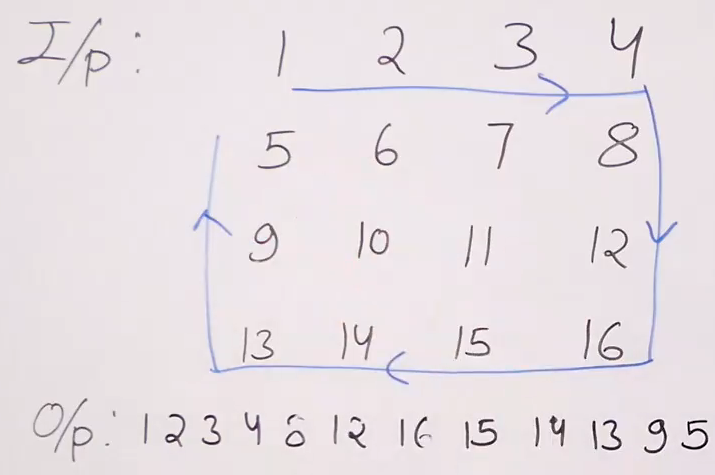 I/p: 1 2 3 4
5 6 7 8
9 10 11 12
13 14 15 16
O/p: 1 2 3 4 8 12 16 15 14 13 9 5